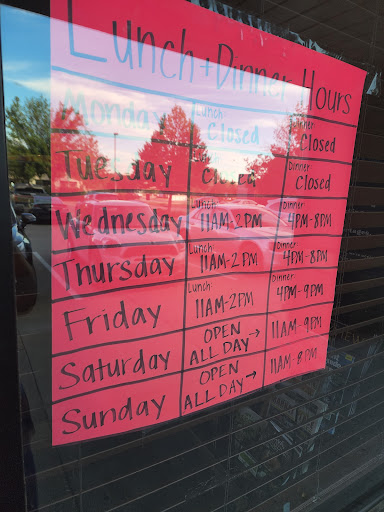 Lunch + Dinner Hours
Monday Lunch: Closed Dinner: Closed
Tuesday Closed Dinner Closed
Wednesday Lunch 11AM-2PM Dinner: 4PM-8PM
Thursday Lunch: 11AM-2PM Dinner: 4PM-8PM
Friday Lunch 11AM-2PM Dinner 4PM-9PM
Saturday OPEN ALL DAY → 11AM-9PM
Sunday OPEN ALL DAY → 11AM-8PM